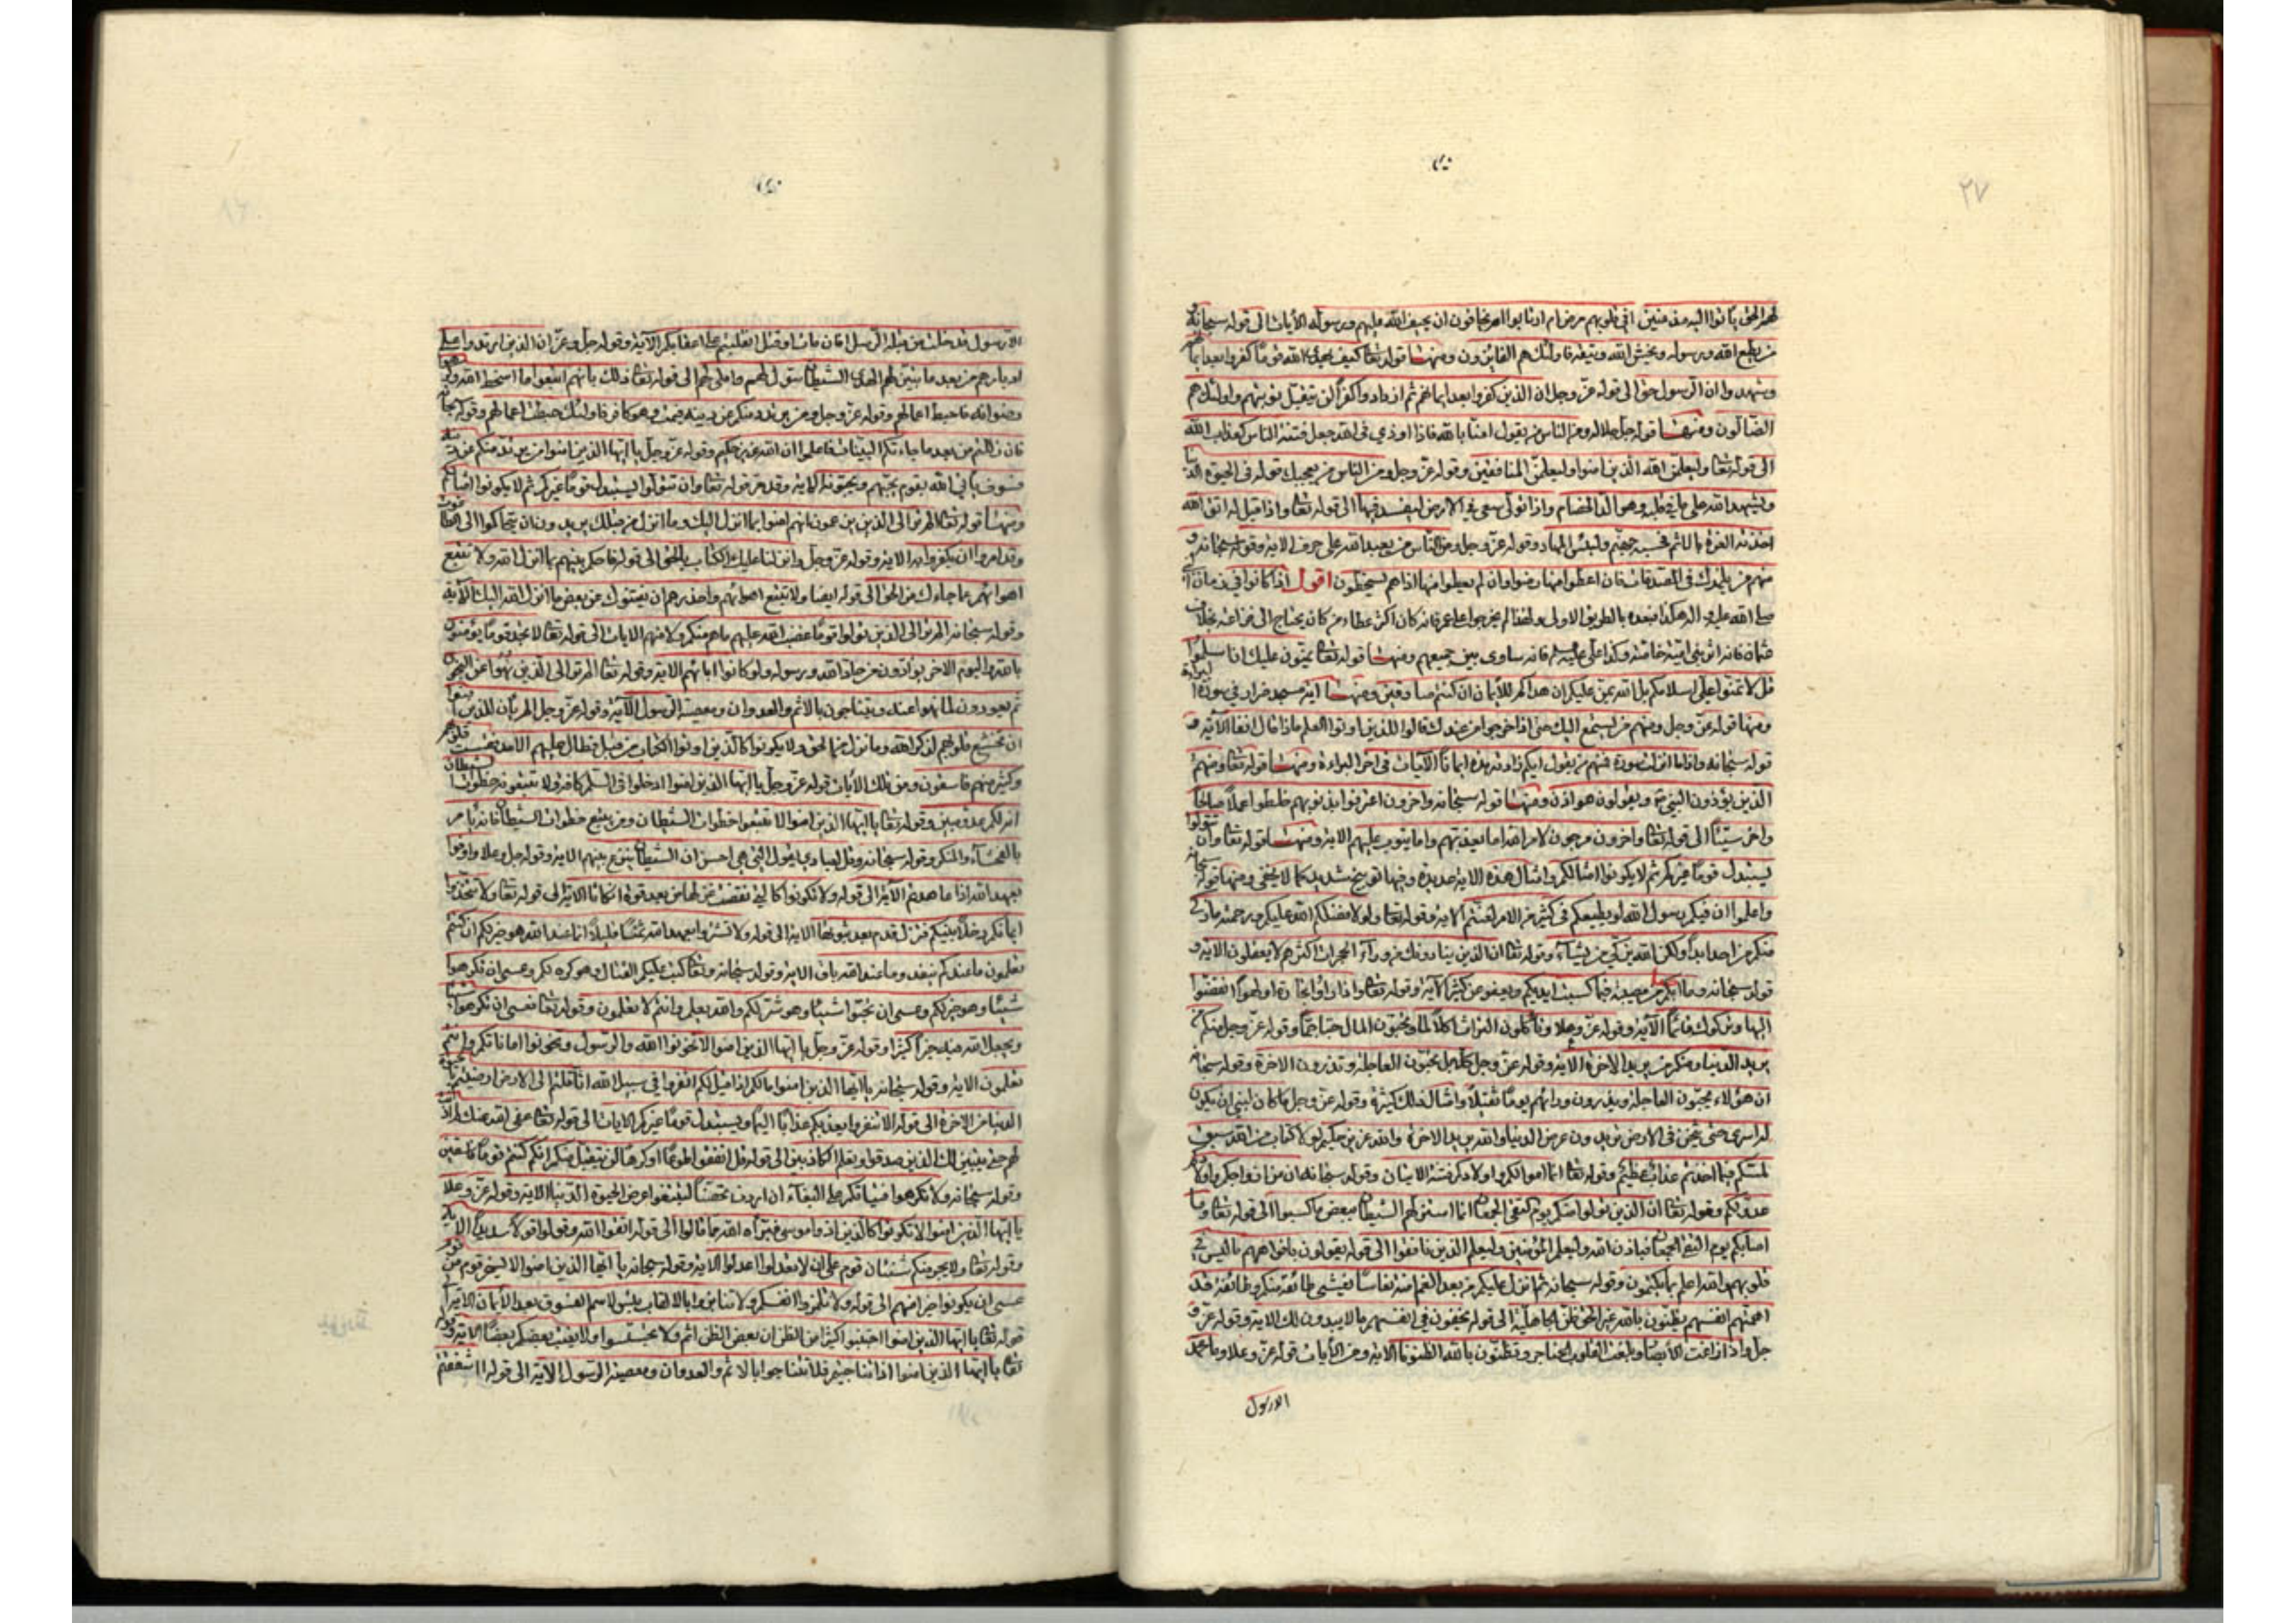 ٢٧
لهم الحق يأتوا اليه مذعنين افي قلوبهم مرض ام ارتابوا ام يخافون ان يحيف الله عليهم ورسوله الآيات الى قوله سبحانه و
من يطع الله ورسوله ويخش الله ويتقه فاولئك هم الفائزون ومنها قوله تعا كيف يهدي الله قوما كفروا بعد ايمانهم
وشهدوا ان الرسول حق الى قوله عز وجل ان الذين كفروا بعد ايمانهم ثم ازدادوا كفرا لن تقبل توبتهم واولئك هم
الضالون ومنها قوله جل جلاله ومن الناس من يقول امنا بالله فاذا اوذي في الله جعل فتنة الناس كعذاب الله
الى قوله تعا وليعلمن الله الذين امنوا وليعلمن المنافقين وقوله عز وجل ومن الناس من يعجبك قوله في الحيوة الدنيا
ويشهد الله على ما في قلبه وهو الد الخصام واذا تولى سعى في الارض ليفسد فيها الى قوله تعا واذا قيل له اتق الله
اخذته العزة بالاثم فحسبه جهنم ولبئس المهاد وقوله عز وجل ومن الناس من يعبد الله على حرف الاية وقوله سبحانه و
منهم من يلمزك في الصدقات فان اعطوا منها رضوا وان لم يعطوا منها اذا هم يسخطون اقول اذا كانوا في زمان
صلى الله عليه واله هكذا فبعده بالطريق الاولى ولهذا لم يخرجوا على عمر فانه كان اكثر عطاء من كان يحتاج الى بخلاف
عثمان فانه اثر بني امية خاصة وكذا على عليه السلم فانه ساوى بين جميعهم ومنها قوله تعا يمنون عليك ان اسلموا
قل لا تمنوا علي اسلامكم بل الله يمن عليكم ان هداكم للايمان ان كنتم صادقين ومنها اية مسجد ضرار في سورة البراءة
ومنها قوله عز وجل ومنهم من يستمع اليك حتى اذا خرجوا من عندك قالوا للذين اوتوا العلم ماذا قال انفا الآية و
قوله سبحانه واذا ما انزلت سورة فمنهم من يقول ايكم زادته هذه ايمانا الآيات في اخر البراءة ومنها قوله تعا ومنهم
الذين يؤذون النبي ويقولون هو اذن ومنها قوله سبحانه واخرون اعترفوا بذنوبهم خلطوا عملا صالحا
واخر سيئا الى قوله تعا واخرون مرجون لامر الله اما يعذبهم واما يتوب عليهم الاية ومنها قوله تعا وان تتولوا
يستبدل قوما غيركم ثم لا يكونوا امثالكم وامثال هذه الاية عديدة وفيها توبيخ شديد كما لا يخفى ومنها قوله سبحانه
واعلموا ان فيكم رسول الله لو يطيعكم في كثير من الامر لعنتم الاية وقوله تعا ولولا فضل الله عليكم ورحمته ما زكى
منكم من احد ابدا ولكن الله يزكي من يشاء وقوله تعا ان الذين ينادونك من وراء الحجرات اكثرهم لا يعقلون الاية و
قوله سبحانه وما اصابكم من مصيبة فبما كسبت ايديكم ويعفو عن كثير الآية وقوله تعا واذا راوا تجارة او لهوا انفضوا
اليها وتركوك قائما الآية وقوله عز وعلا وتأكلون التراث اكلا لما وتحبون المال حبا جما وقوله عز وجل منكم من
يريد الدنيا ومنكم من يريد الاخرة الاية وقوله عز وجل كلا بل تحبون العاجلة وتذرون الاخرة وقوله سبحانه
ان هؤلاء يحبون العاجلة ويذرون وراءهم يوما ثقيلا وامثال ذلك كثيرة وقوله عز وجل ما كان لنبي ان يكون
له اسرى حتى يثخن في الارض تريدون عرض الدنيا والله يريد الاخرة والله عزيز حكيم لولا كتاب من الله سبق
لمسكم فيما اخذتم عذاب عظيم وقوله تعا انما اموالكم واولادكم فتنة الايتان وقوله سبحانه ان من ازواجكم واولادكم
عدوا لكم وقوله تعا ان الذين تولوا منكم يوم التقى الجمعان انما استزلهم الشيطان ببعض ما كسبوا الى قوله تعا وما
اصابكم يوم التقى الجمعان فباذن الله وليعلم المؤمنين وليعلم الذين نافقوا الى قوله يقولون بافواههم ما ليس في
قلوبهم والله اعلم بما يكتمون وقوله سبحانه ثم انزل عليكم من بعد الغم امنة نعاسا يغشى طائفة منكم وطائفة قد
اهمتهم انفسهم يظنون بالله غير الحق ظن الجاهلية الى قوله يخفون في انفسهم ما لا يبدون لك الاية وقوله عز و
جل واذ زاغت الابصار وبلغت القلوب الحناجر وتظنون بالله الظنونا الاية ومن الآيات قوله عز وعلا وما محمد
الا رسول
الا رسول قد خلت من قبله الرسل افان مات او قتل انقلبتم على اعقابكم الآية وقوله جل وعز ان الذين ارتدوا على
ادبارهم من بعد ما تبين لهم الهدى الشيطان سول لهم واملى لهم الى قوله تعا ذلك بانهم اتبعوا ما اسخط الله وكرهوا
رضوانه فاحبط اعمالهم وقوله عز وجل ومن يرتدد منكم عن دينه فيمت وهو كافر فاولئك حبطت اعمالهم وقوله سبحانه
فان زللتم من بعد ما جاءتكم البينات فاعلموا ان الله عزيز حكيم وقوله عز وجل يا ايها الذين امنوا من يرتد منكم عن دينه
فسوف يأتي الله بقوم يحبهم ويحبونه الاية وقد مر قوله تعا وان تتولوا يستبدل قوما غيركم ثم لا يكونوا امثالكم
ومنها قوله تعا الم تر الى الذين يزعمون انهم امنوا بما انزل اليك وما انزل من قبلك يريدون ان يتحاكموا الى الطاغوت
وقد امروا ان يكفروا به الاية وقوله عز وجل وانزلنا عليك الكتاب بالحق الى قوله فاحكم بينهم بما انزل الله ولا تتبع
اهواءهم عما جاءك من الحق الى قوله ايضا ولا تتبع اهواءهم واحذرهم ان يفتنوك عن بعض ما انزل الله اليك الآية
وقوله سبحانه الم تر الى الذين تولوا قوما غضب الله عليهم ما هم منكم ولا منهم الايات الى قوله تعا لا تجد قوما يؤمنون
بالله واليوم الاخر يوادون من حاد الله ورسوله ولو كانوا اباءهم الاية وقوله تعا الم تر الى الذين نهوا عن النجوى
ثم يعودون لما نهوا عنه ويتناجون بالاثم والعدوان ومعصية الرسول الآية وقوله عز وجل الم يأن للذين امنوا
ان تخشع قلوبهم لذكر الله وما نزل من الحق ولا يكونوا كالذين اوتوا الكتاب من قبل فطال عليهم الامد فقست قلوبهم
وكثير منهم فاسقون ومن تلك الآيات قوله عز وجل يا ايها الذين امنوا ادخلوا في السلم كافة ولا تتبعوا خطوات الشيطان
انه لكم عدو مبين وقوله تعا يا ايها الذين امنوا لا تتبعوا خطوات الشيطان ومن يتبع خطوات الشيطان فانه يأمر
بالفحشاء والمنكر وقوله سبحانه وقل لعبادي يقول التي هي احسن ان الشيطان ينزغ بينهم الاية وقوله جل وعلا واوفوا
بعهد الله اذا عاهدتم الآية الى قوله ولا تكونوا كالتي نقضت غزلها من بعد قوة انكاثا الاية الى قوله تعا ولا تتخذوا
ايمانكم دخلا بينكم فتزل قدم بعد ثبوتها الاية الى قوله ولا تشتروا بعهد الله ثمنا قليلا انما عند الله هو خير لكم ان كنتم
تعلمون ما عندكم ينفد وما عند الله باق الاية وقوله سبحانه وتعا كتب عليكم القتال وهو كره لكم وعسى ان تكرهوا
شيئا وهو خير لكم وعسى ان تحبوا شيئا وهو شر لكم والله يعلم وانتم لا تعلمون وقوله تعا فعسى ان تكرهوا شيئا
ويجعل الله فيه خيرا كثيرا وقوله عز وجل يا ايها الذين امنوا لا تخونوا الله والرسول وتخونوا اماناتكم وانتم
تعلمون الاية وقوله سبحانه يا ايها الذين امنوا ما لكم اذا قيل لكم انفروا في سبيل الله اثاقلتم الى الارض ارضيتم بالحيوة
الدنيا من الاخرة الى قوله الا تنفروا يعذبكم عذابا اليما ويستبدل قوما غيركم الايات الى قوله تعا عفى الله عنك لم اذنت
لهم حتى يتبين لك الذين صدقوا وتعلم الكاذبين الى قوله قل انفقوا طوعا او كرها لن يتقبل منكم انكم كنتم قوما فاسقين
وقوله سبحانه ولا تكرهوا فتياتكم على البغاء ان اردن تحصنا لتبتغوا عرض الحيوة الدنيا الاية وقوله عز وعلا
يا ايها الذين امنوا لا تكونوا كالذين اذوا موسى فبرأه الله مما قالوا الى قوله اتقوا الله وقولوا قولا سديدا الاية
وقوله تعا ولا يجرمنكم شنئان قوم على ان لا تعدلوا اعدلوا الاية وقوله سبحانه يا ايها الذين امنوا لا يسخر قوم من قوم
عسى ان يكونوا خيرا منهم الى قوله ولا تلمزوا انفسكم ولا تنابزوا بالالقاب بئس الاسم الفسوق بعد الايمان الاية
قوله تعا يا ايها الذين امنوا اجتنبوا كثيرا من الظن ان بعض الظن اثم ولا تجسسوا ولا يغتب بعضكم بعضا الاية وقوله
تعا يا ايها الذين امنوا اذا تناجيتم فلا تتناجوا بالاثم والعدوان ومعصية الرسول الاية الى قوله ءاشفقتم